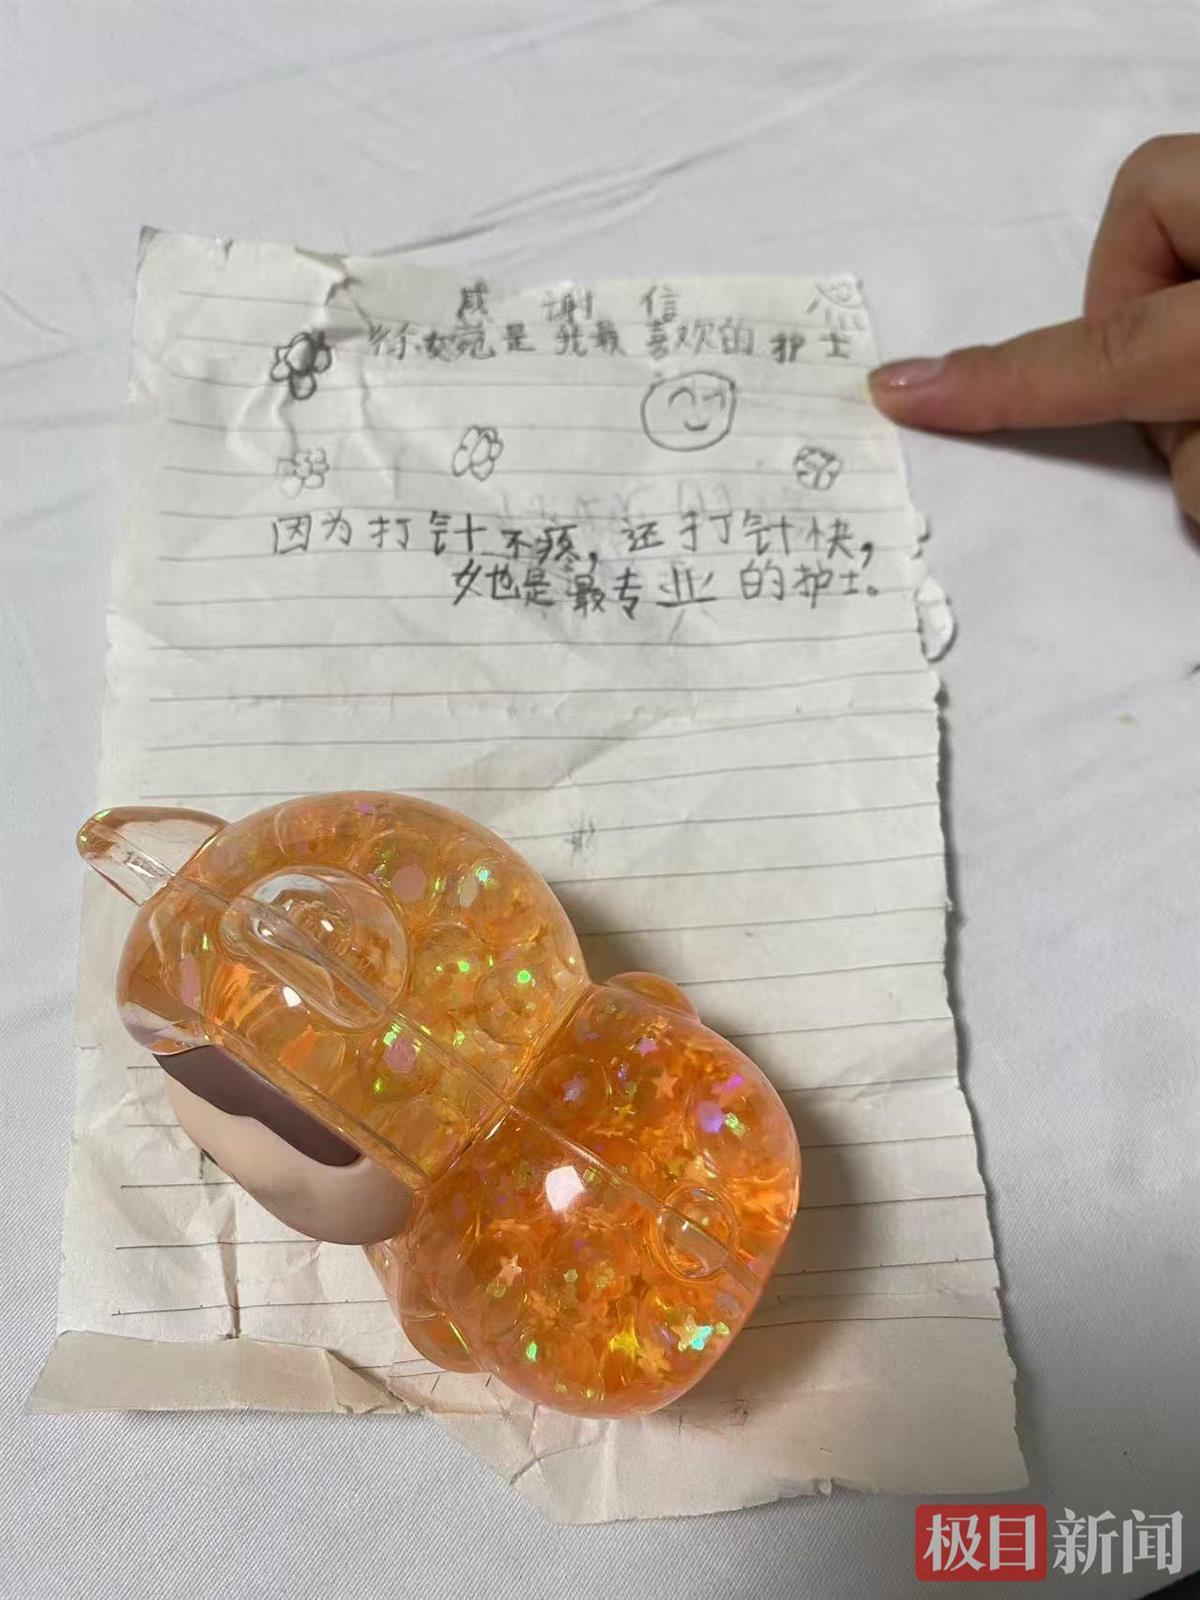 感谢信
徐婉菀是我最喜欢的护士
因为打针不疼，还打针快，
她也是最专业的护士。
极目新闻